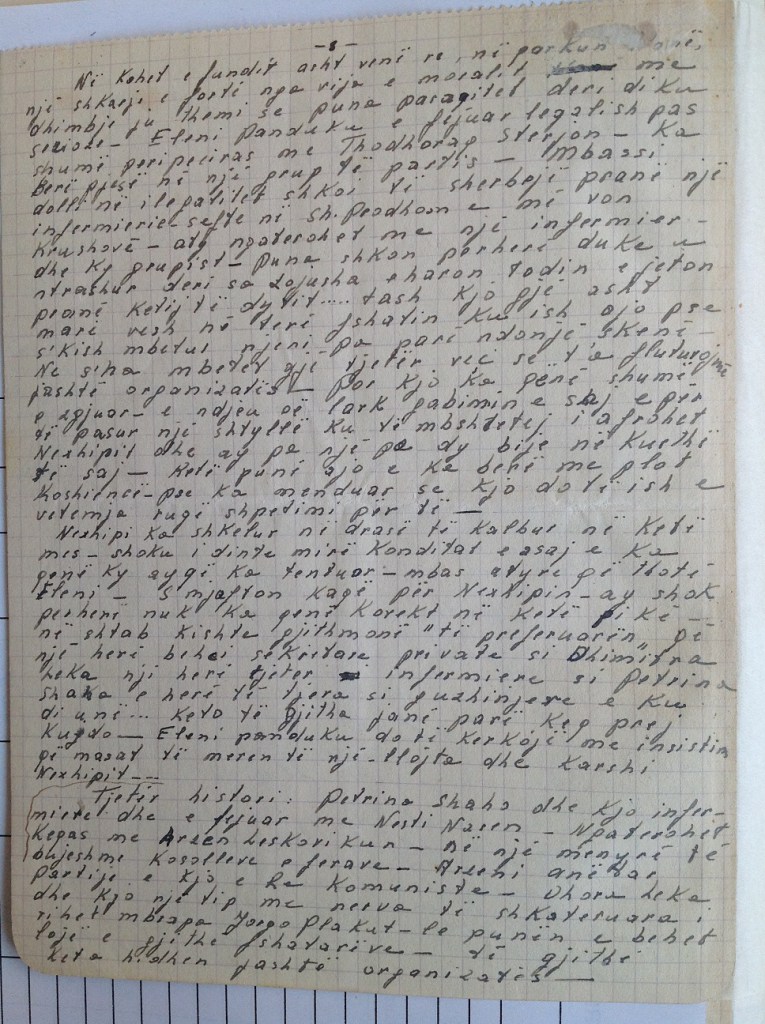 -8-
Në kohet e fundit asht venë re, në parkun
një shkarje e fortë nga vija e moralit me
dhimbje ju themi se puna paraqitet deri diku
serioze - Eleni Panduku e fejuar legalisht pas
shumë peripeciras me Thodhoraq Sterjon - Ka
Berë pjesë në një grup të partis - Mbassi
dolli në ilegalitet shkoi të sherbejë pranë një
infermierie - sefte në Sh. Prodhom e më von
Krushovë - aty ngaterohet me një infermier -
dhe ky grupist - Puna shkon perherë duke u
ntrashur deri sa zojusha eharon todin e jeton
pranë ketij të dytit..... tash kjo gjë asht
marë vesh në terë fshatin ku ish ajo pse
s'kish mbetur njeri pa parë ndonjë skenë -
Ne s'na mbetet gjë tjetër veç se t'a fluturojmë
jashtë organizatës - por kjo ka qenë shumë
e zgjuar - e ndjeu që lark gabimin e saj e për
të pasur një shtyllë ku të mbshtetej i afrohet
Nexhipit dhe ay pa një pa dy bije në kurthë
të saj - Ketë punë ajo e ka berë me plot
koshiencë - pse ka menduar se kjo do të ish e
vetemja rugë shpetimi për të -
Nexhipi ka shkelur në drasë të kalbur në ketë
mes - shoku i dinte mirë konditat e asaj e ka
qenë ky aygë ka tentuar - mbas atyre që thotë
Eleni - S'mjafton kaqë për Nexhipin - ay shok
perherë nuk ka qenë korekt në ketë pikë -
në shtab kishte gjithmonë "të preferuarën" që
një herë behej sekretare private si Dhimitra
Leka nji herë tjeter infermiere si Petrina
Shaha e herë të tjera si guzhinjere e ku
di unë... keto të gjitha janë parë keq prej
Kujdo - Eleni Panduku do të kerkojë me insistim
që masat të meren të një-llojta dhe karshi
Nexhipit - -
Tjetër histori: Petrina Shaho dhe kjo infer-
miere dhe e fejuar me Nesti Nasen - Ngaterohet
keqas me Arzen Leskovikun - në një menyrë të
bujeshme Kosolleve e ferave - Arzeni anëtar
Partije e kjo e Re Komuniste - Dhora Leka
dhe kjo një tip me nerva të shkateruara i
rihet mbrapa Jorgo Plakut - le punën e behet
lojë e gjithe fshatarëve - të gjithë
keta hidhen jashtë organizatës -